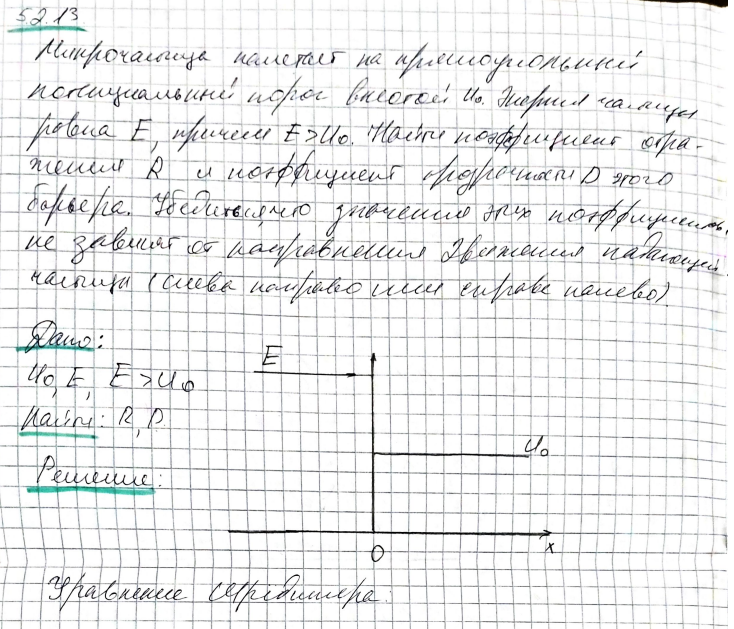 5.2.13
Микрочастица налетает на прямоугольный
потенциальный порог высотой U₀. Энергия частицы
равна E, причем E>U₀. Найти коэффициент отра-
жения R и коэффициент прозрачности D этого
барьера. Убедиться, что значения этих коэффициентов
не зависят от направления движения падающей
частицы (слева направо или справа налево).
Дано:
U₀, E, E>U₀
Найти: R, D
Решение:
E
U₀
O
x
Уравнение Шредингера: